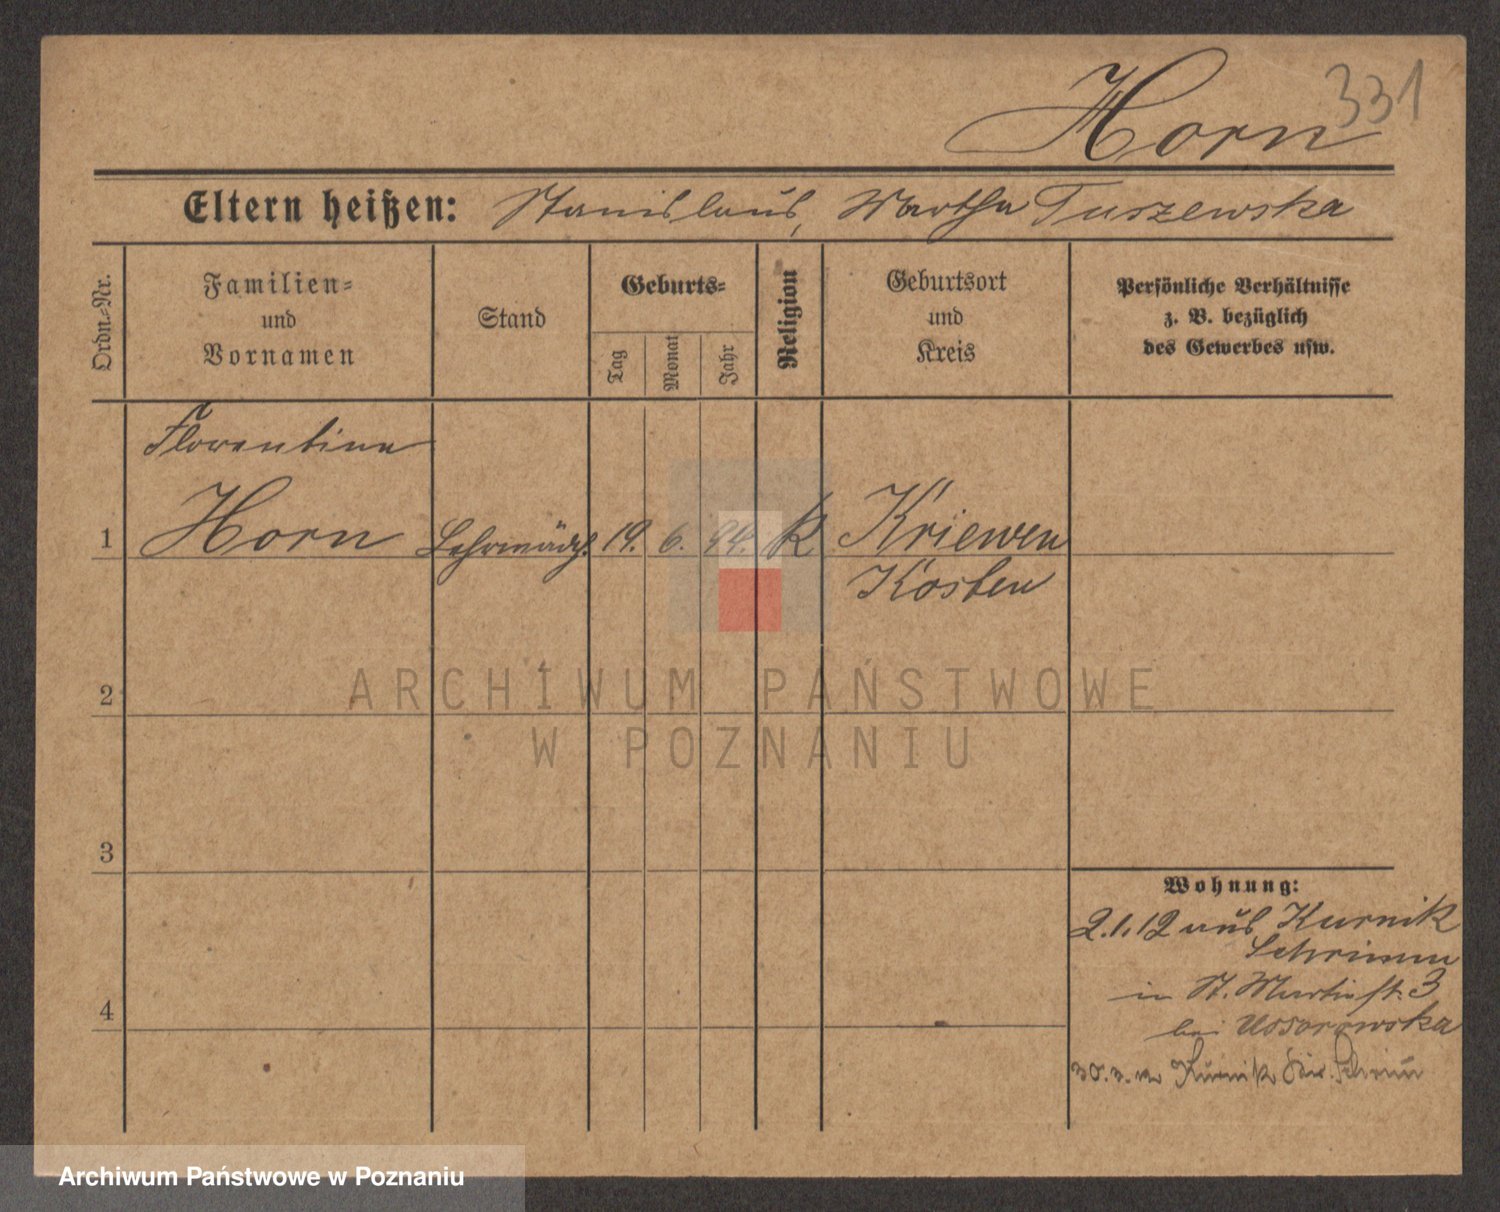 331
Horn
Eltern heißen: Stanislaus, Martha Tuszewska
Ordn.-Nr.
Familien-
und
Vornamen
Stand
Geburts-
Tag
Monat
Jahr
Religion
Geburtsort
und
Kreis
Persönliche Verhältnisse
z. B. bezüglich
des Gewerbes usw.
Florentine
1 Horn Lehrmädch. 19. 6. 94. k. Kriewen
Kosten
2
ARCHIWUM PAŃSTWOWE
W POZNANIU
3
Wohnung:
2.1.12 aus Kurnik
Schrimm
in St. Martinstr. 3
4
bei Ossorowska
30.3. Kurnik Schrim
Archiwum Państwowe w Poznaniu